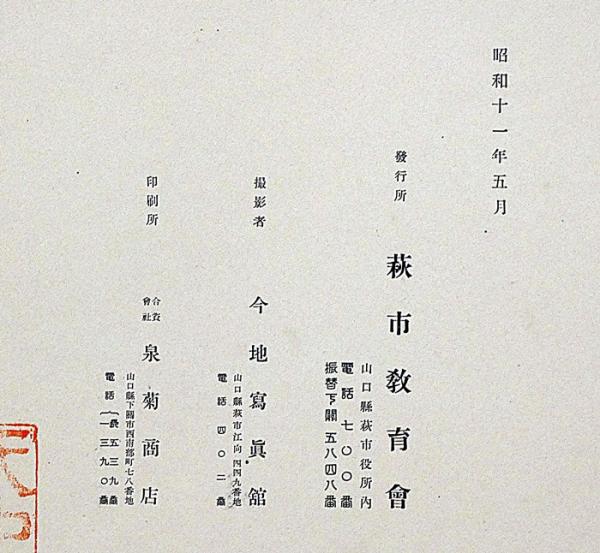 昭和十一年五月
發行所
萩市敎育會
山口縣萩市役所內
電話七〇〇番
振替下關五八四八番
撮影者
今地寫眞舘
山口縣萩市江向四四九番地
電話四〇二番
印刷所
合資會社
泉菊商店
山口縣下關市西南部町七八番地
電話(長五三九番
一三九〇番)